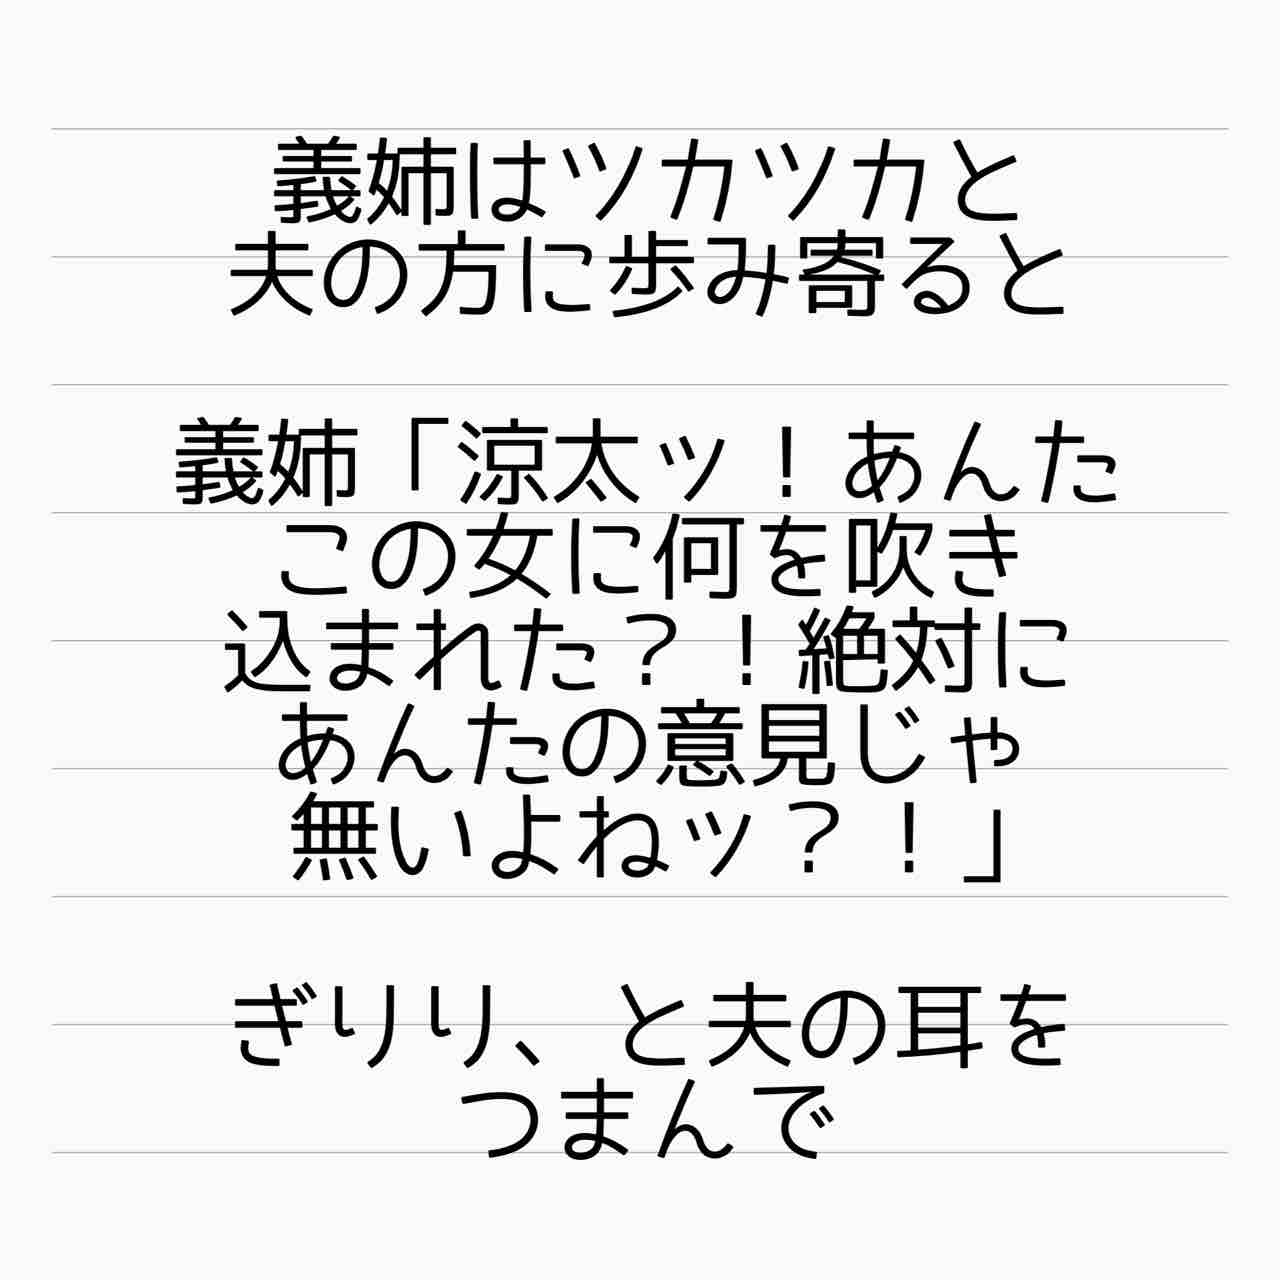 義姉はツカツカと
夫の方に歩み寄ると
義姉「涼太ッ！あんた
この女に何を吹き
込まれた？！絶対に
あんたの意見じゃ
無いよねッ？！」
ぎりり、と夫の耳を
つまんで